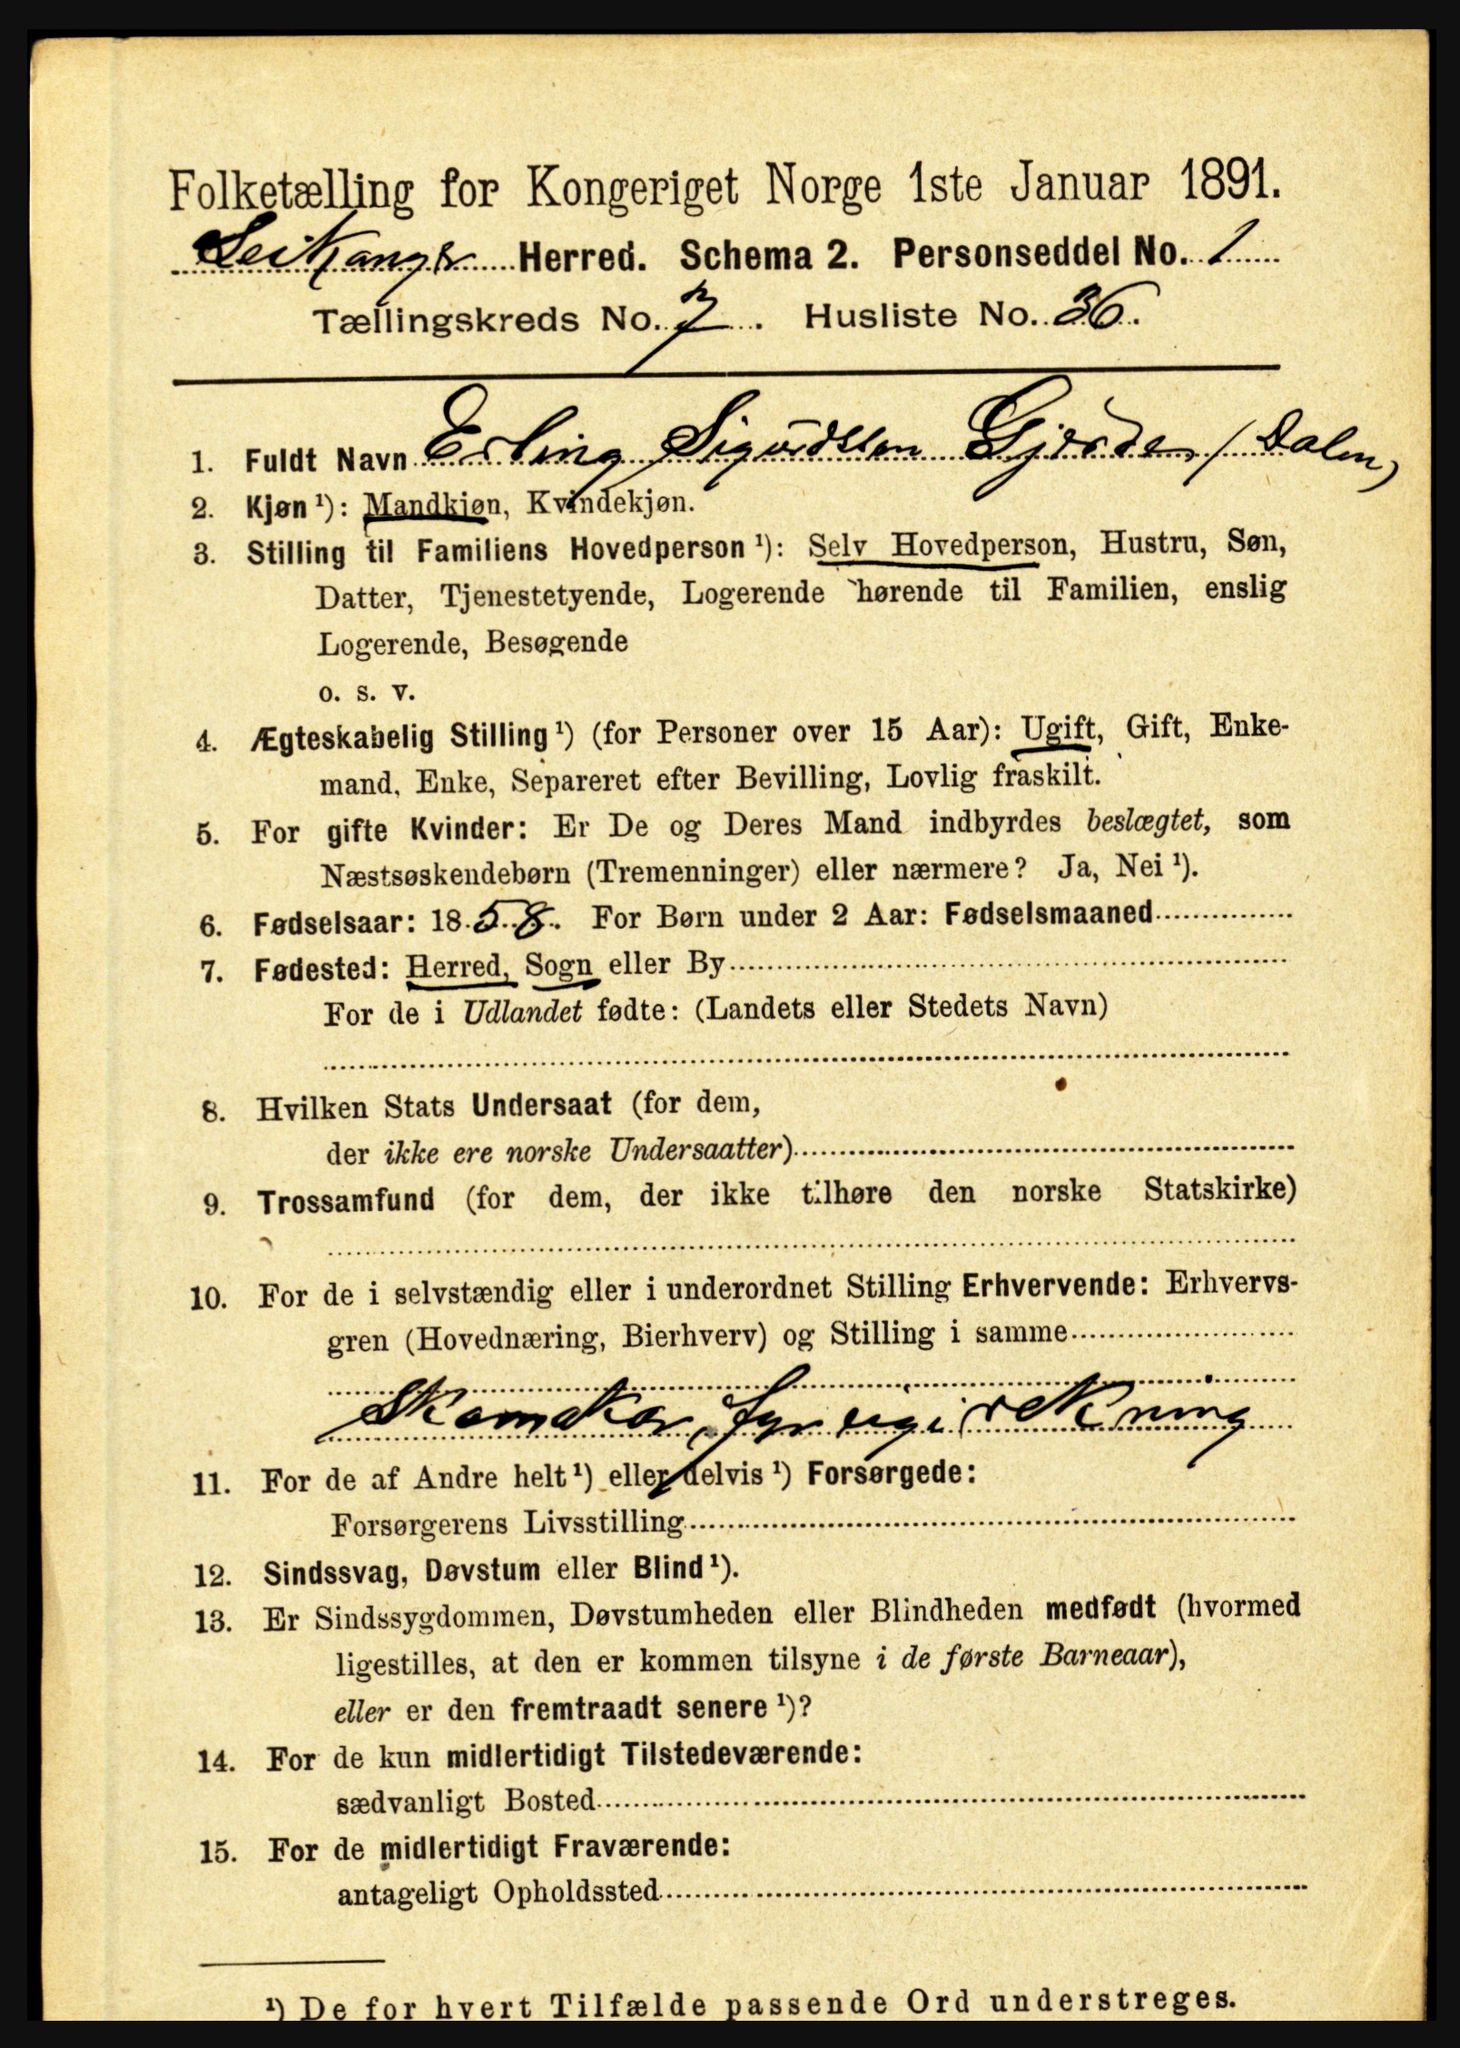 Folketælling for Kongeriget Norge 1ste Januar 1891.
Leikanger Herred. Schema 2. Personseddel No. 1
Tællingskreds No. 7. Husliste No. 36.
1. Fuldt Navn Erling Sigurdsen Gjerde (Dalen)
2. Kjøn ¹): Mandkjøn, Kvindekjøn.
3. Stilling til Familiens Hovedperson ¹): Selv Hovedperson, Hustru, Søn,
Datter, Tjenestetyende, Logerende hørende til Familien, enslig
Logerende, Besøgende
o. s. v.
4. Ægteskabelig Stilling ¹) (for Personer over 15 Aar): Ugift, Gift, Enke-
mand, Enke, Separeret efter Bevilling, Lovlig fraskilt.
5. For gifte Kvinder: Er De og Deres Mand indbyrdes beslægtet, som
Næstsøskendebørn (Tremenninger) eller nærmere? Ja, Nei ¹).
6. Fødselsaar: 1858. For Børn under 2 Aar: Fødselsmaaned
7. Fødested: Herred, Sogn eller By
For de i Udlandet fødte: (Landets eller Stedets Navn)
8. Hvilken Stats Undersaat (for dem,
der ikke ere norske Undersaatter)
9. Trossamfund (for dem, der ikke tilhøre den norske Statskirke)
10. For de i selvstændig eller i underordnet Stilling Erhvervende: Erhvervs-
gren (Hovednæring, Bierhverv) og Stilling i samme
Skomakar, fyr eigi rekning
11. For de af Andre helt ¹) eller delvis ¹) Forsørgede:
Forsørgerens Livsstilling
12. Sindssvag, Døvstum eller Blind ¹).
13. Er Sindssygdommen, Døvstumheden eller Blindheden medfødt (hvormed
ligestilles, at den er kommen tilsyne i de første Barneaar),
eller er den fremtraadt senere ¹)?
14. For de kun midlertidigt Tilstedeværende:
sædvanligt Bosted
15. For de midlertidigt Fraværende:
antageligt Opholdssted
¹) De for hvert Tilfælde passende Ord understreges.